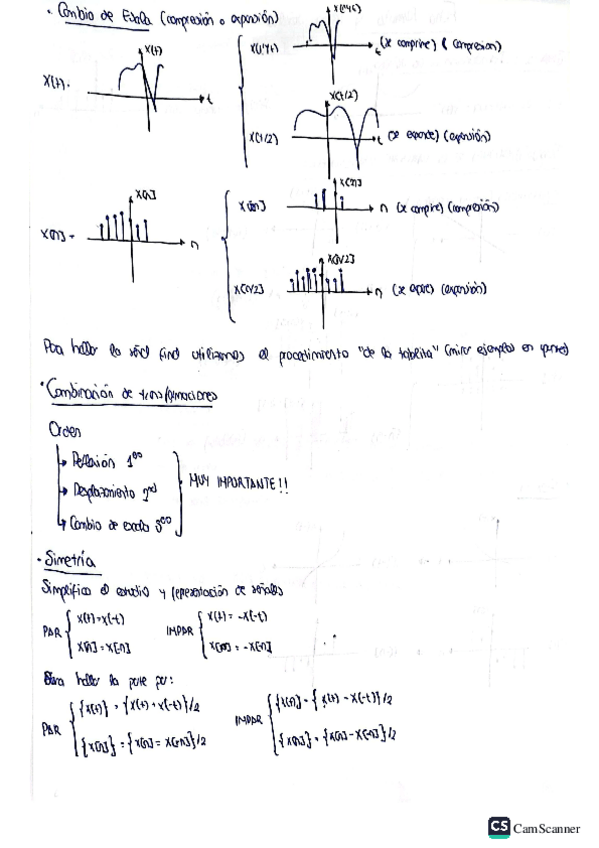 · Cambio de Escala (compresión o expansión)
x(t)
x(t)
t
(se comprime) (compresión)
x(t/2)
x(t/2)
t
(se expande) (expansión)
x[n]
x[n] =
n
x[n]
n
(compresión)
x[n/2]
x[n/2]
n
(expansión)
Para hallar la señal final utilizamos el procedimiento "de la tablita" (mirar ejemplos en apuntes)
· Combinación de transformaciones
Orden
↳ Reflexión 1ero
↳ Desplazamiento 2nd
↳ Cambio de escala 3ero
MUY IMPORTANTE!!
· Simetría
Simplifica el estudio y representación de señales
PAR
x(t)=x(-t)
x[n]=x[-n]
IMPAR
x(t) = -x(-t)
x[n] = -x[-n]
Para hallar la parte par:
PAR
{x(t)} = {x(t) + x(-t)}/2
{x[n]} = {x[n] = x[-n]}/2
IMPAR
{x[n]} = {x(t) - x(-t)}/2
{x[n]} = {x[n] - x[-n]}/2
CS CamScanner